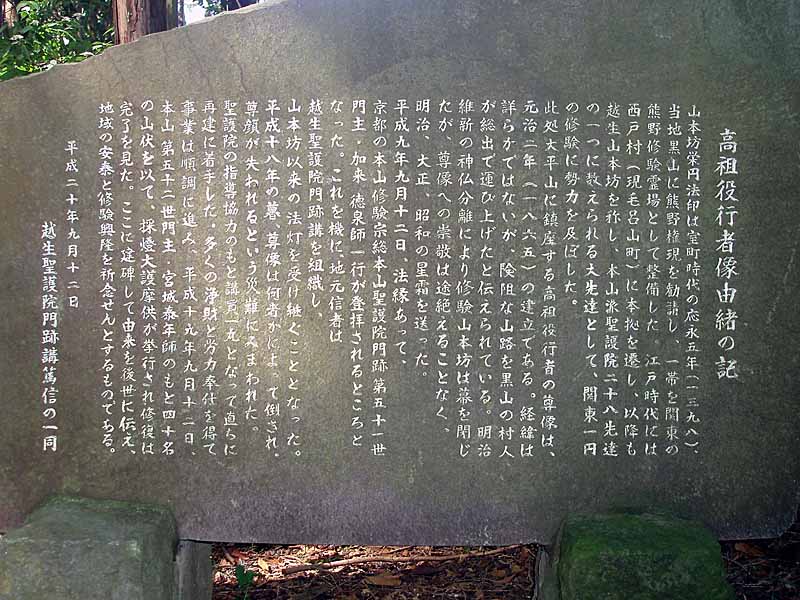 高祖役行者像由緒の記
山本坊栄円法印は室町時代の応永五年(一三九八)、
当地黒山に熊野権現を勧請し、一帯を関東の
熊野修験霊場として整備した。江戸時代には
西戸村(現毛呂山町)に本拠を遷し、以降も
越生山本坊を称し、本山派聖護院二十八先達
の一つに数えられる大先達として、関東一円
の修験に勢力を及ぼした。
此処大平山に鎮座する高祖役行者の尊像は、
元治二年(一八六五)の建立である。経緯は
詳らかではないが、険阻な山路を黒山の村人
が総出で運び上げたと伝えられている。明治
維新の神仏分離により修験山本坊は幕を閉じ
たが、尊像への崇敬は途絶えることなく、
明治、大正、昭和の星霜を送った。
平成九年九月十二日、法縁あって、
京都の本山修験宗総本山聖護院門跡第五十一世
門主・加来徳泉師一行が登拝されるところと
なった。これを機に、地元信者は
越生聖護院門跡講を組織し、
山本坊以来の法灯を受け継ぐこととなった。
平成十八年の暮、尊像は何者かによって倒され、
尊顔が失われるという災難にみまわれた。
聖護院の指導協力のもと講員一丸となって直らに
再建に着手した。多くの浄財と労力奉仕を得て
事業は順調に進み、平成十九年九月十二日、
本山第五十二世門主・宮城泰年師のもと四十名
の山伏を以て、採燈大護摩供が挙行され修復は
完了を見た。ここに建碑して由来を後世に伝え、
地域の安泰と修験興隆を祈念せんとするものである。
平成二十年九月十二日
越生聖護院門跡講篤信の一同